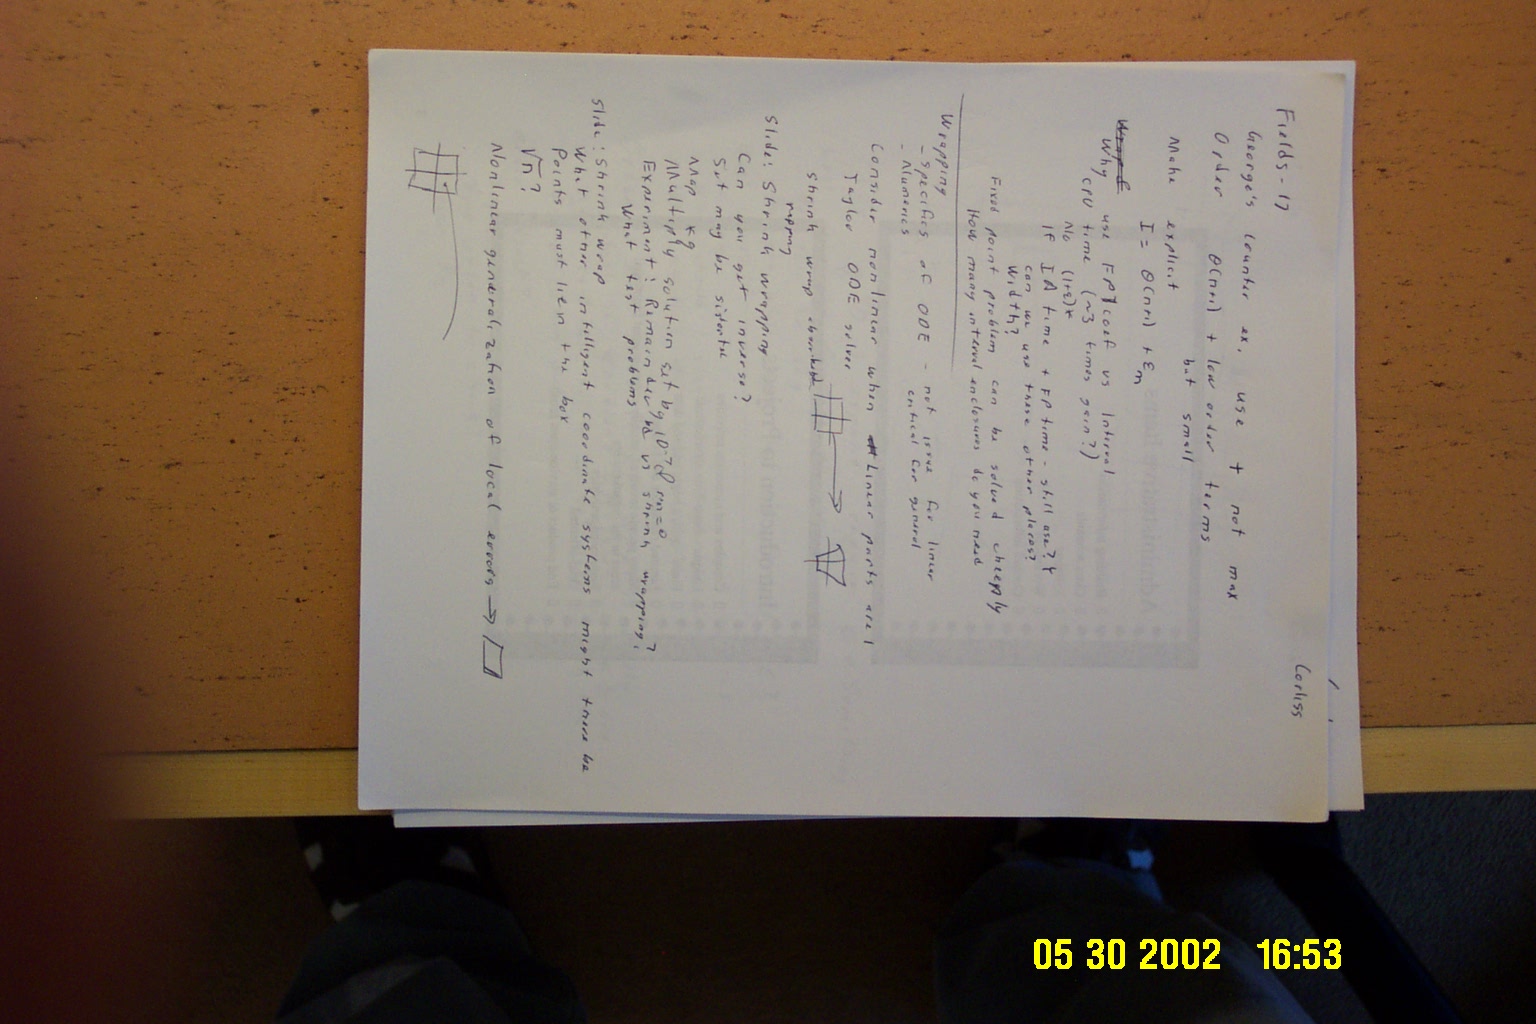 Fields-17
Corliss
George's counter ex. use + not max
Order θ(n+1) + low order terms
Make explicit but small
I = θ(n+1) + εm
Why use FP coef vs Interval
CPU time (~3 times gain?)
No (1+ε)*
If IA time + FP time - still use?
can we use these other places?
Width?
Fixed point problem can be solved cheeply
How many interval enclosures do you need
Wrapping
- Specifics of ODE - not issue for linear
critical for general
- Numerics
Consider nonlinear when Linear parts are 1
Taylor ODE solver
Shrink wrap
Slide: Shrink wrapping
Can you get inverse?
Set may be
Map
Multiply solution set by 10^-7
Experiment: Remainder vs shrink wrapping?
What test problems
Slide: Shrink wrap
What other intelligent coordinate systems might there be
Points must lie in the box
√n?
Nonlinear generalization of local errors →
05 30 2002 16:53